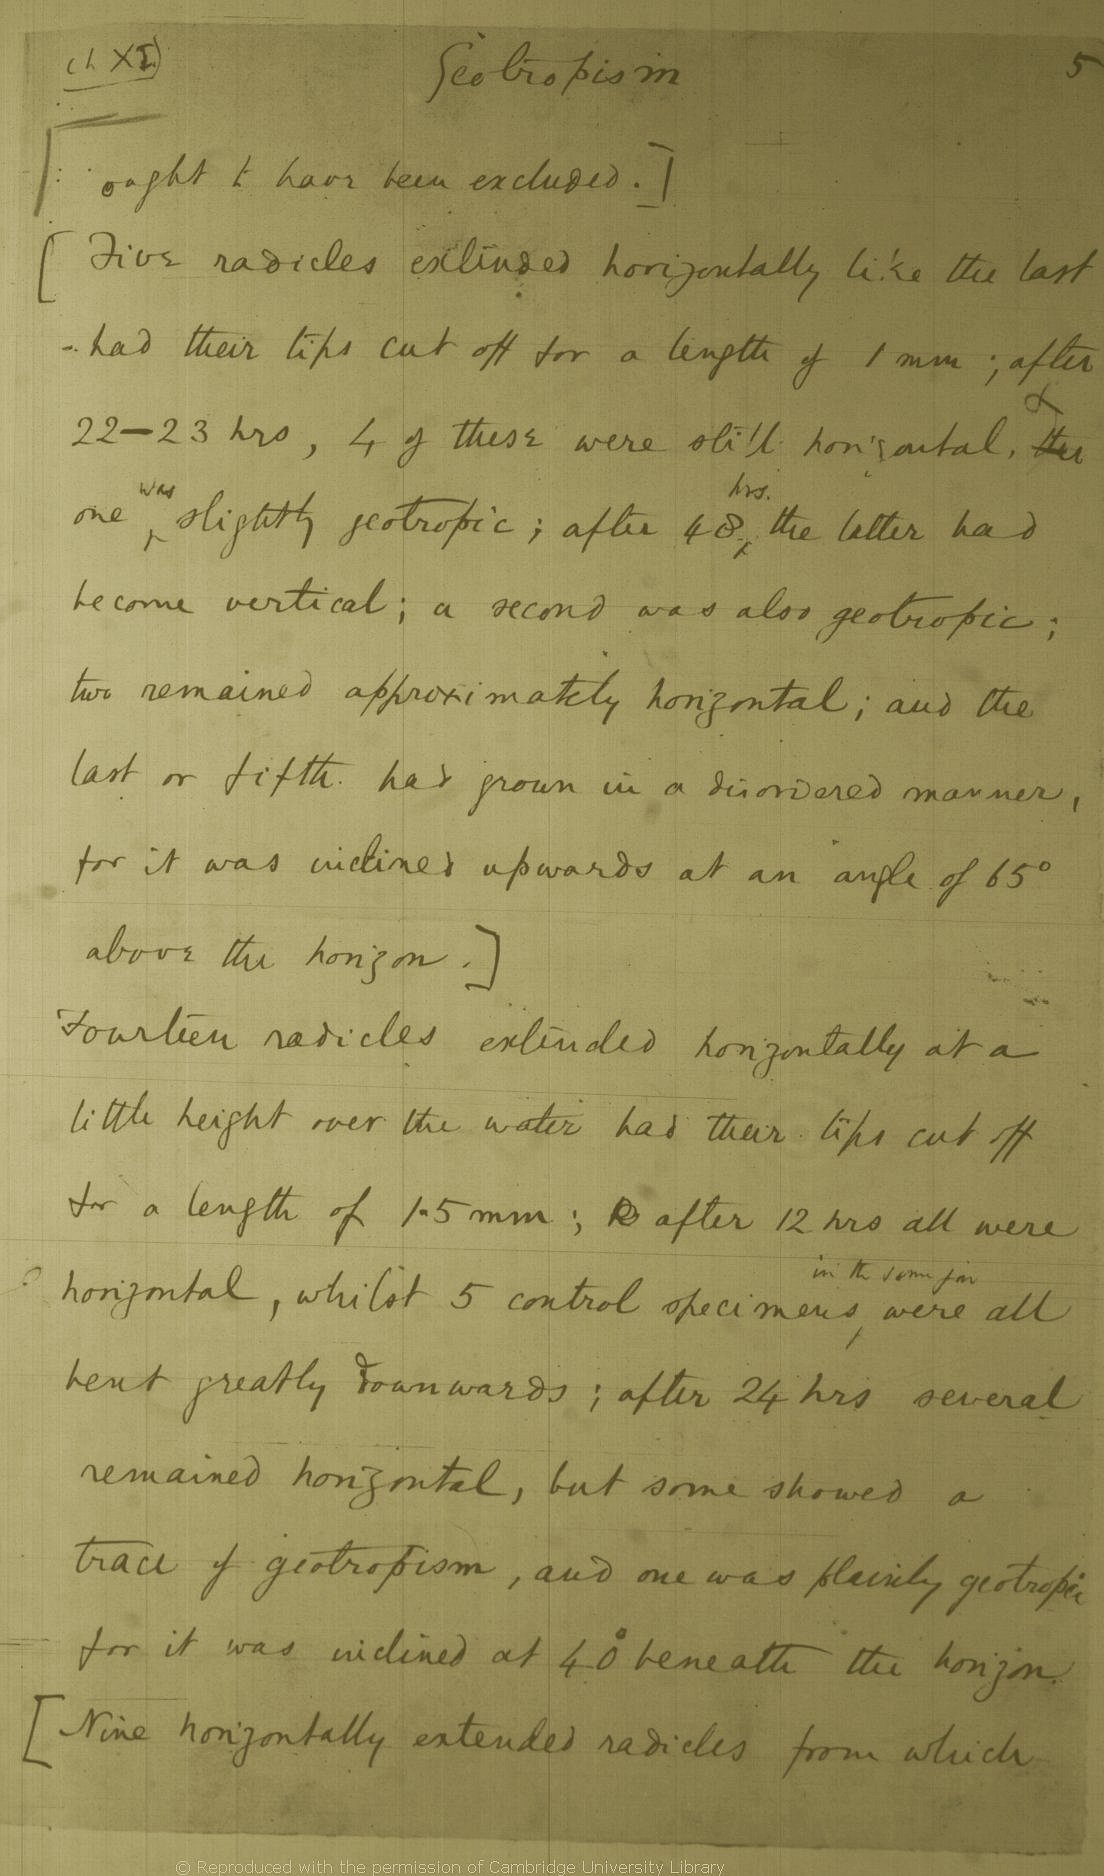 Ch XI)
Geotropism
5
[ought to have been excluded.]
[Five radicles extended horizontally like the last
had their tips cut off for a length of 1 mm; after
22—23 hrs, 4 of these were still horizontal, &
one was slightly geotropic; after 48 hrs. the latter had
become vertical; a second was also geotropic;
two remained approximately horizontal; and the
last or fifth had grown in a disordered manner,
for it was inclined upwards at an angle of 65°
above the horizon.]
Fourteen radicles extended horizontally at a
little height over the water had their tips cut off
for a length of 1.5 mm; after 12 hrs all were
horizontal, whilst 5 control specimens in the same jar were all
bent greatly downwards; after 24 hrs several
remained horizontal, but some showed a
trace of geotropism, and one was plainly geotropic
for it was inclined at 40° beneath the horizon.
[Nine horizontally extended radicles from which
© Reproduced with the permission of Cambridge University Library